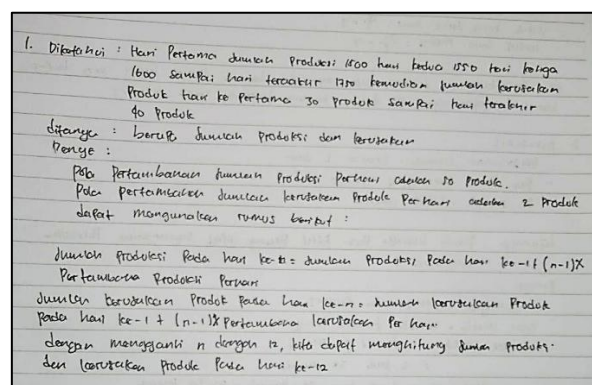 1. Diketahui : Hari Pertama Jumlah Produksi 1500 hari kedua 1550 hari ketiga
1600 sampai hari terakhir 1750 kemudian jumlah kerusakan
Produk hari ke Pertama 30 produk sampai hari terakhir
40 Produk
ditanya : berapa Jumlah Produksi dan kerusakan
Penye :
Pola Pertambahan Jumlah Produksi Perhari adalah 50 Produk.
Pola pertambahan Jumlah kerusakan Produk Per hari adalah 2 Produk
dapat mengunakan rumus berikut :
Jumlah Produksi Pada hari ke-n = Jumlah Produksi Pada hari ke-1 + (n-1) X
Pertambahan Produksi Perhari
Jumlah kerusakan Produk Pada hari ke-n = Jumlah kerusakan Produk
Pada hari ke-1 + (n-1) X Pertambahan kerusakan Per hari.
dengan mengganti n dengan 12, kita dapat menghitung Jumlah Produksi
dan kerusakan Produk Pada hari ke-12